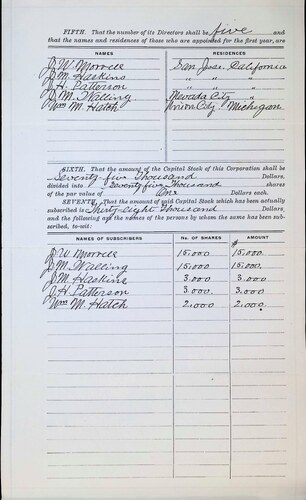 FIFTH. That the number of its Directors shall be five and
that the names and residences of those who are appointed for the first year, are
NAMES RESIDENCES
J. W. Morrell San Jose, California
J. M. Haskins " " "
J. H. Patterson " " "
J. M. Walling Nevada City "
Wm M. Hatch Union City Michegan
SIXTH. That the amount of the Capital Stock of this Corporation shall be
Seventy-five Thousand Dollars,
divided into Seventy five Thousand shares
of the par value of One Dollars each.
SEVENTH. That the amount of said Capital Stock which has been actually
subscribed is Thirty-eight Thousand Dollars,
and the following are the names of the persons by whom the same has been sub-
scribed, to-wit:
NAMES OF SUBSCRIBERS NO. OF SHARES $ AMOUNT
J. W. Morrell 15,000 15,000.
J. M. Walling 15,000 15,000.
J. M. Haskins 3,000 3,000.
J. H. Patterson 3,000 3,000.
Wm M. Hatch 2,000 2,000.